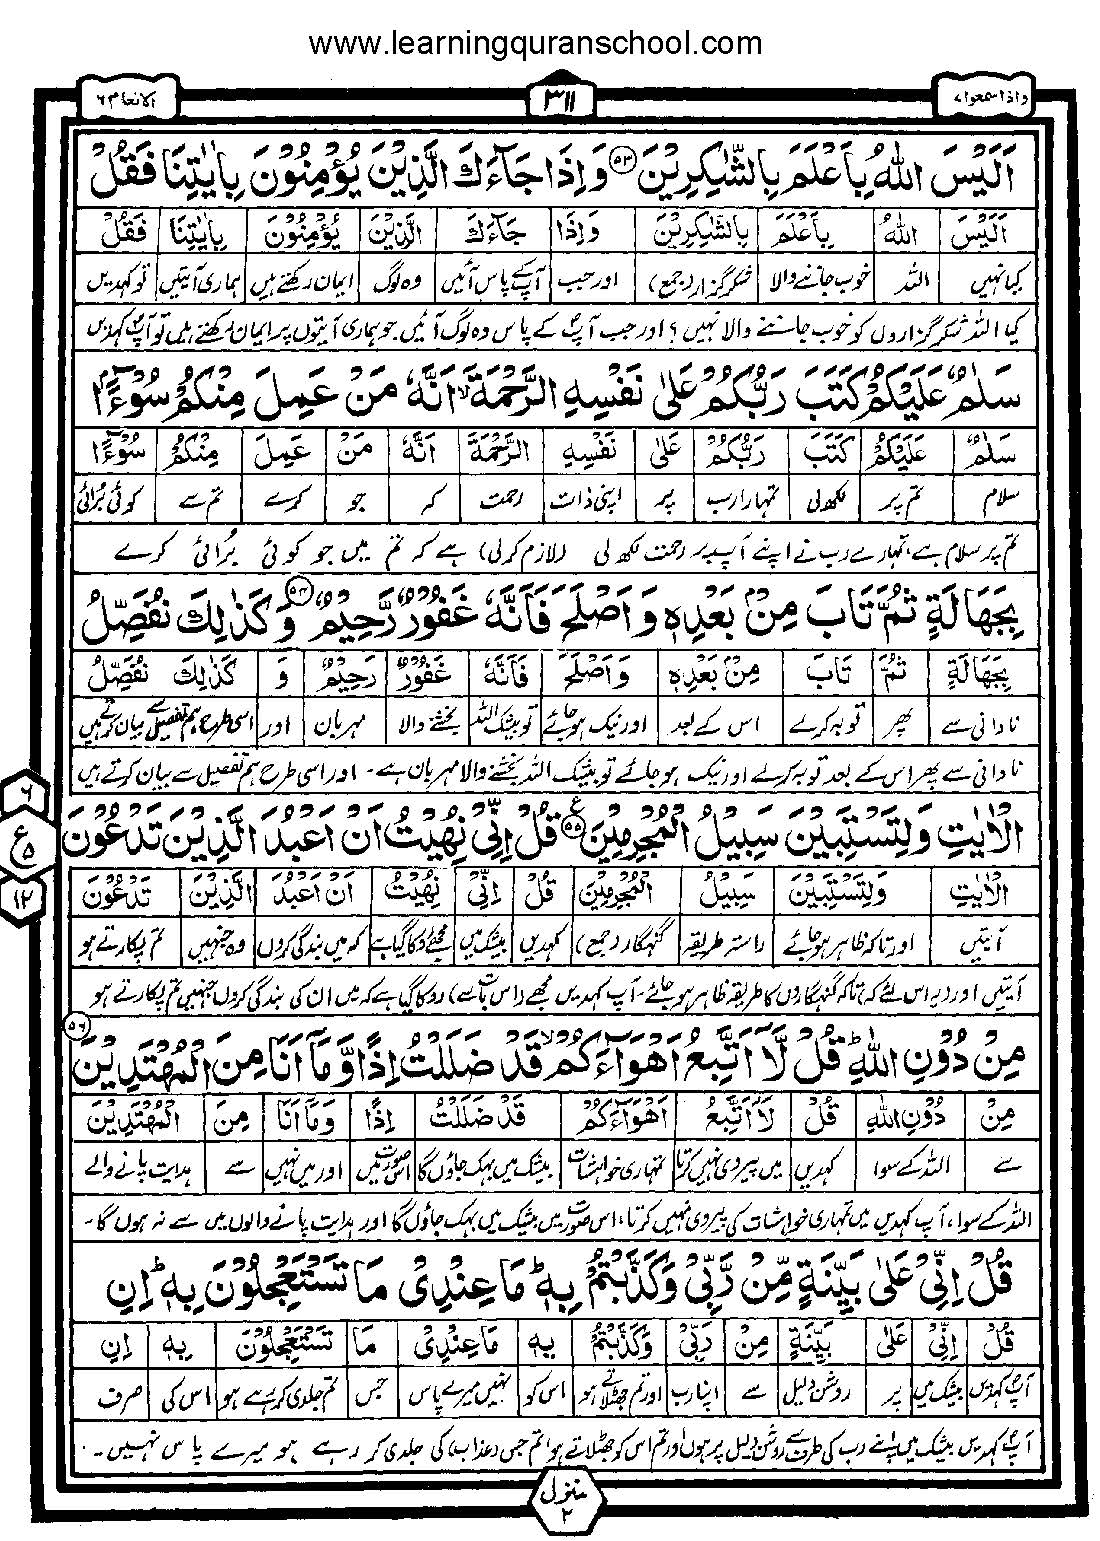 www.learningquranschool.com
واذاسمعوا ۷ ۳۱۱ الانعام ۶
اَلَيْسَ اللّٰهُ بِاَعْلَمَ بِالشّٰكِرِيْنَ ۵۳ وَاِذَا جَآءَكَ الَّذِيْنَ يُؤْمِنُوْنَ بِاٰيٰتِنَا فَقُلْ
اَلَيْسَ اللّٰهُ بِاَعْلَمَ بِالشّٰكِرِيْنَ وَاِذَا جَآءَكَ الَّذِيْنَ يُؤْمِنُوْنَ بِاٰيٰتِنَا فَقُلْ
کیا نہیں اللہ خوب جاننے والا شکر گزار (جمع) اور جب آپ کے پاس آئیں وہ لوگ ایمان رکھتے ہیں ہماری آیتیں تو کہدیں
کیا اللہ شکر گزاروں کو خوب جاننے والا نہیں؟ اور جب آپ کے پاس وہ لوگ آئیں جو ہماری آیتوں پر ایمان رکھتے ہیں تو آپ کہدیں
سَلٰمٌ عَلَيْكُمْ كَتَبَ رَبُّكُمْ عَلٰى نَفْسِهِ الرَّحْمَةَ ۙ اَنَّهٗ مَنْ عَمِلَ مِنْكُمْ سُوْٓءًۢا
سَلٰمٌ عَلَيْكُمْ كَتَبَ رَبُّكُمْ عَلٰى نَفْسِهِ الرَّحْمَةَ اَنَّهٗ مَنْ عَمِلَ مِنْكُمْ سُوْٓءًۢا
سلام تم پر لکھ لی تمہارا رب پر اپنی ذات رحمت کہ جو کرے تم سے کوئی برائی
تم پر سلام ہے، تمہارے رب نے اپنے آپ پر رحمت لکھ لی (لازم کر لی) ہے کہ تم میں جو کوئی بُرائی کرے
بِجَهَالَةٍ ثُمَّ تَابَ مِنْۢ بَعْدِهٖ وَاَصْلَحَ فَاَنَّهٗ غَفُوْرٌ رَّحِيْمٌ ۵۴ وَكَذٰلِكَ نُفَصِّلُ
بِجَهَالَةٍ ثُمَّ تَابَ مِنْۢ بَعْدِهٖ وَاَصْلَحَ فَاَنَّهٗ غَفُوْرٌ رَّحِيْمٌ وَ كَذٰلِكَ نُفَصِّلُ
نادانی سے پھر توبہ کرے اس کے بعد اور نیک ہو جائے تو بیشک اللہ بخشنے والا مہربان اور اسی طرح ہم تفصیل سے بیان کرتے ہیں
نادانی سے پھر اس کے بعد توبہ کرلے اور نیک ہو جائے تو بیشک اللہ بخشنے والا مہربان ہے۔ اور اسی طرح ہم تفصیل سے بیان کرتے ہیں
۶
ع
۵
۱۲
الْاٰيٰتِ وَلِتَسْتَبِيْنَ سَبِيْلُ الْمُجْرِمِيْنَ ۵۵ ع قُلْ اِنِّىْ نُهِيْتُ اَنْ اَعْبُدَ الَّذِيْنَ تَدْعُوْنَ
الْاٰيٰتِ وَلِتَسْتَبِيْنَ سَبِيْلُ الْمُجْرِمِيْنَ قُلْ اِنِّىْ نُهِيْتُ اَنْ اَعْبُدَ الَّذِيْنَ تَدْعُوْنَ
آیتیں اور تاکہ ظاہر ہو جائے راستہ طریقہ گنہگار (جمع) کہدیں بیشک میں مجھے روکا گیا ہے کہ میں بندگی کروں وہ جنہیں تم پکارتے ہو
آیتیں اور (یہ اس لئے کہ) تاکہ گنہگاروں کا طریقہ ظاہر ہو جائے۔ آپ کہدیں مجھے (اس بات سے) روکا گیا ہے کہ میں ان کی بندگی کروں جنہیں تم پکارتے ہو
مِنْ دُوْنِ اللّٰهِ ؕ قُلْ لَّآ اَتَّبِعُ اَهْوَآءَكُمْ ۙ قَدْ ضَلَلْتُ اِذًا وَّمَآ اَنَا مِنَ الْمُهْتَدِيْنَ ۵۶
مِنْ دُوْنِ اللّٰهِ قُلْ لَّآ اَتَّبِعُ اَهْوَآءَكُمْ قَدْ ضَلَلْتُ اِذًا وَمَآ اَنَا مِنَ الْمُهْتَدِيْنَ
سے اللہ کے سوا کہدیں میں پیروی نہیں کرتا تمہاری خواہشات بیشک میں بہک جاؤں گا اس صورت میں اور میں نہیں سے ہدایت پانے والے
اللہ کے سوا، آپ کہدیں میں تمہاری خواہشات کی پیروی نہیں کرتا، اس صورت میں بیشک میں بہک جاؤں گا اور ہدایت پانے والوں میں سے نہ ہوں گا۔
قُلْ اِنِّىْ عَلٰى بَيِّنَةٍ مِّنْ رَّبِّىْ وَكَذَّبْتُمْ بِهٖ ؕ مَا عِنْدِىْ مَا تَسْتَعْجِلُوْنَ بِهٖ ؕ اِنِ
قُلْ اِنِّىْ عَلٰى بَيِّنَةٍ مِنْ رَبِّىْ وَكَذَّبْتُمْ بِهٖ مَا عِنْدِىْ مَا تَسْتَعْجِلُوْنَ بِهٖ اِنِ
آپ کہدیں بیشک میں پر روشن دلیل سے اپنا رب اور تم جھٹلاتے ہو اس کو نہیں میرے پاس جس تم جلدی کر رہے ہو اس کی صرف
آپ کہدیں بیشک میں اپنے رب کی طرف سے روشن دلیل پر ہوں اور تم اس کو جھٹلاتے ہو، تم جس (عذاب) کی جلدی کر رہے ہو میرے پاس نہیں۔
منزل ۲